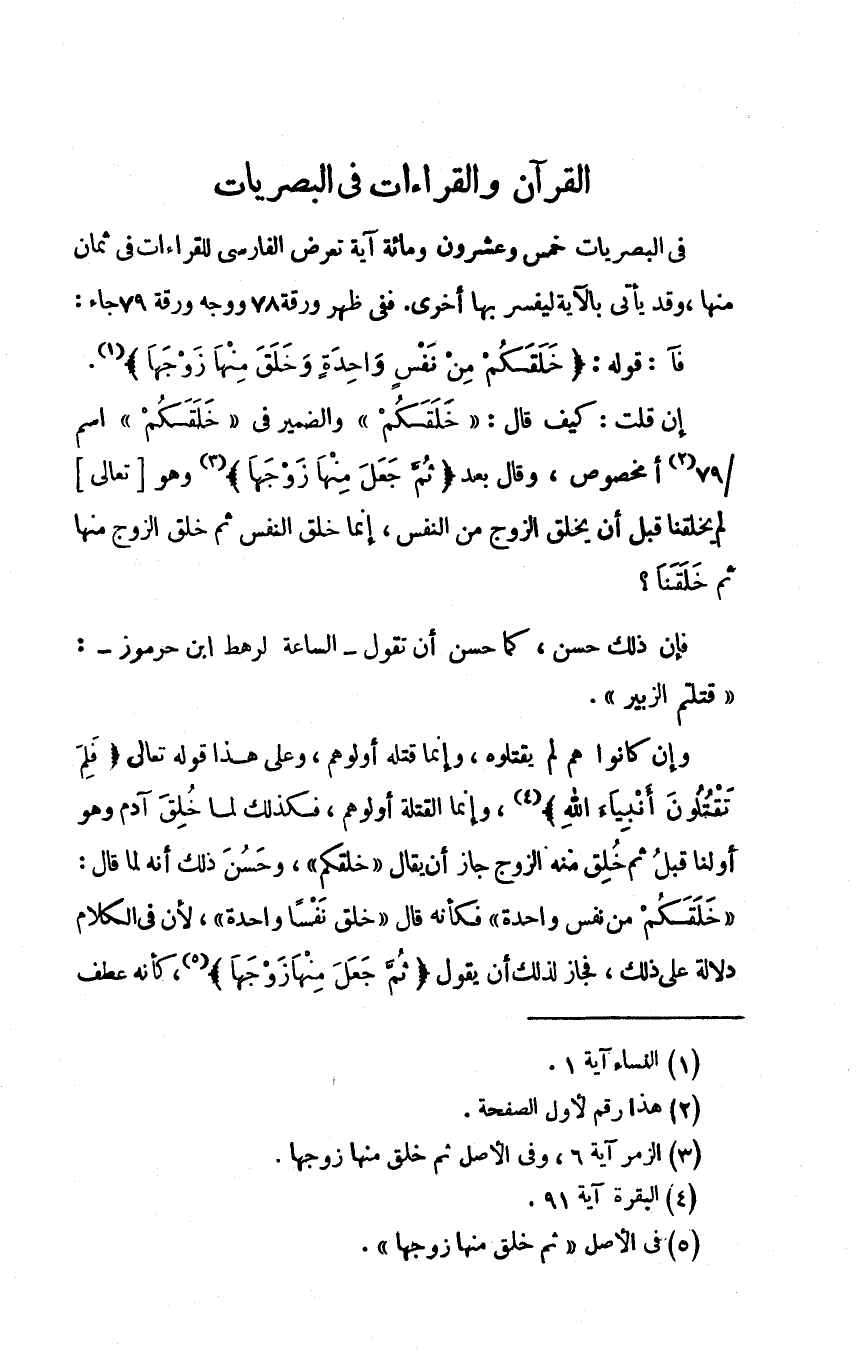 القرآن والقراءات فى البصريات
فى البصريات خمس وعشرون ومائة آية تعرض الفارسى للقراءات فى ثمان
منها ، وقد يأتى بالآية ليفسر بها أخرى. ففى ظهر ورقة ٧٨ ووجه ورقة ٧٩ جاء :
فآ : قوله : ﴿ خَلَقَكُمْ مِنْ نَفْسٍ وَاحِدَةٍ وَخَلَقَ مِنْهَا زَوْجَهَا ﴾(١).
إن قلت : كيف قال : « خَلَقَكُمْ » والضمير فى « خَلَقَكُمْ » اسم
/٧٩(٢) أ مخصوص ، وقال بعد ﴿ ثُمَّ جَعَلَ مِنْهَا زَوْجَهَا ﴾(٣) وهو [ تعالى ]
لم يخلقنا قبل أن يخلق الزوج من النفس ، إنما خلق النفس ثم خلق الزوج منها
ثم خَلَقَنَا ؟
فإن ذلك حسن ، كما حسن أن تقول ــ الساعة لرهط ابن حرموز ــ :
« قتلتم الزبير » .
وإن كانوا هم لم يقتلوه ، وإنما قتله أولوهم ، وعلى هـذا قوله تعالى ﴿ فَلِمَ
تَقْتُلُونَ أَنْبِيَاءَ اللهِ ﴾(٤) ، وإنما القتلة أولوهم ، فـكذلك لمـا خُلِقَ آدم وهو
أولنا قبلُ ثم خُلِق منه الزوج جاز أن يقال «خلقكم» ، وحَسُنَ ذلك أنه لما قال :
«خَلَقَكُمْ من نفس واحدة» فكأنه قال «خلق نَفْسًا واحدة» ، لأن فى الكلام
دلالة على ذلك ، فجاز لذلك أن يقول ﴿ ثُمَّ جَعَلَ مِنْهَا زَوْجَهَا ﴾(٥)، كأنه عطف
(١) النساء آية ١ .
(٢) هذا رقم لأول الصفحة .
(٣) الزمر آية ٦ ، وفى الأصل ثم خلق منها زوجها .
(٤) البقرة آية ٩١ .
(٥) فى الأصل « ثم خلق منها زوجها » .